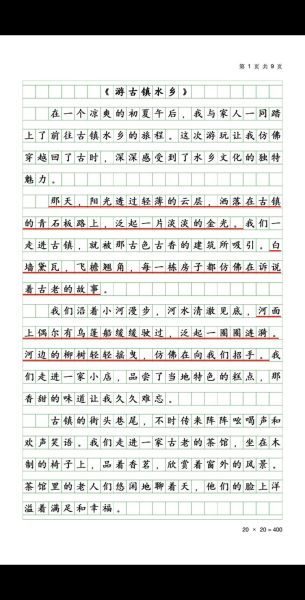 第 1 页 共 9 页
《游古镇水乡》
在一个凉爽的初夏午后，我与家人一同踏
上了前往古镇水乡的旅程。这次游玩让我仿佛
穿越回了古时，深深感受到了水乡文化的独特
魅力。
那天，阳光透过轻薄的云层，洒落在古镇
的青石板路上，泛起一片淡淡的金光。我们一
走进古镇，就被那古色古香的建筑所吸引。白
墙黛瓦，飞檐翘角，每一栋房子都仿佛在诉说
着古老的故事。
我们沿着小河漫步，河水清澈见底，河面
上偶尔有乌篷船缓缓驶过，泛起一圈圈涟漪。
河边的柳树轻轻摇曳，仿佛在向我们招手。我
们走进一家小店，品尝了当地特色的糕点，那
香甜的味道让我久久难忘。
古镇的街头巷尾，不时传来阵阵吆喝声和
欢声笑语。我们走进一家古老的茶馆，坐在木
制的椅子上，品着香茗，欣赏着窗外的风景。
茶馆里的老人们悠闲地聊着天，他们的脸上洋
溢着满足和幸福。
20 × 20 = 400